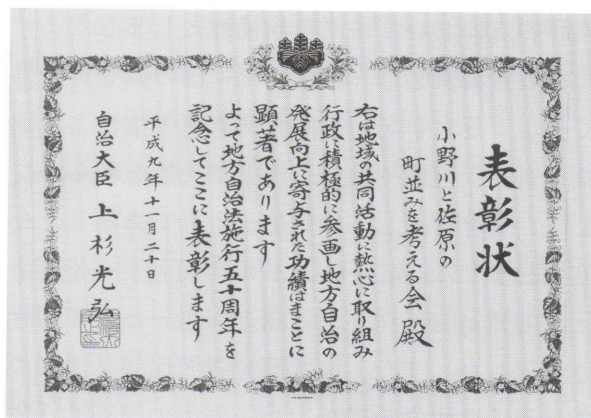 表彰状
小野川と佐原の
町並みを考える会 殿
右は地域の共同活動に熱心に取り組み
行政に積極的に参画し地方自治の
発展向上に寄与された功績はまことに
顕著であります
よって地方自治法施行五十周年を
記念してここに表彰します
平成九年十一月二十日
自治大臣 上杉光弘